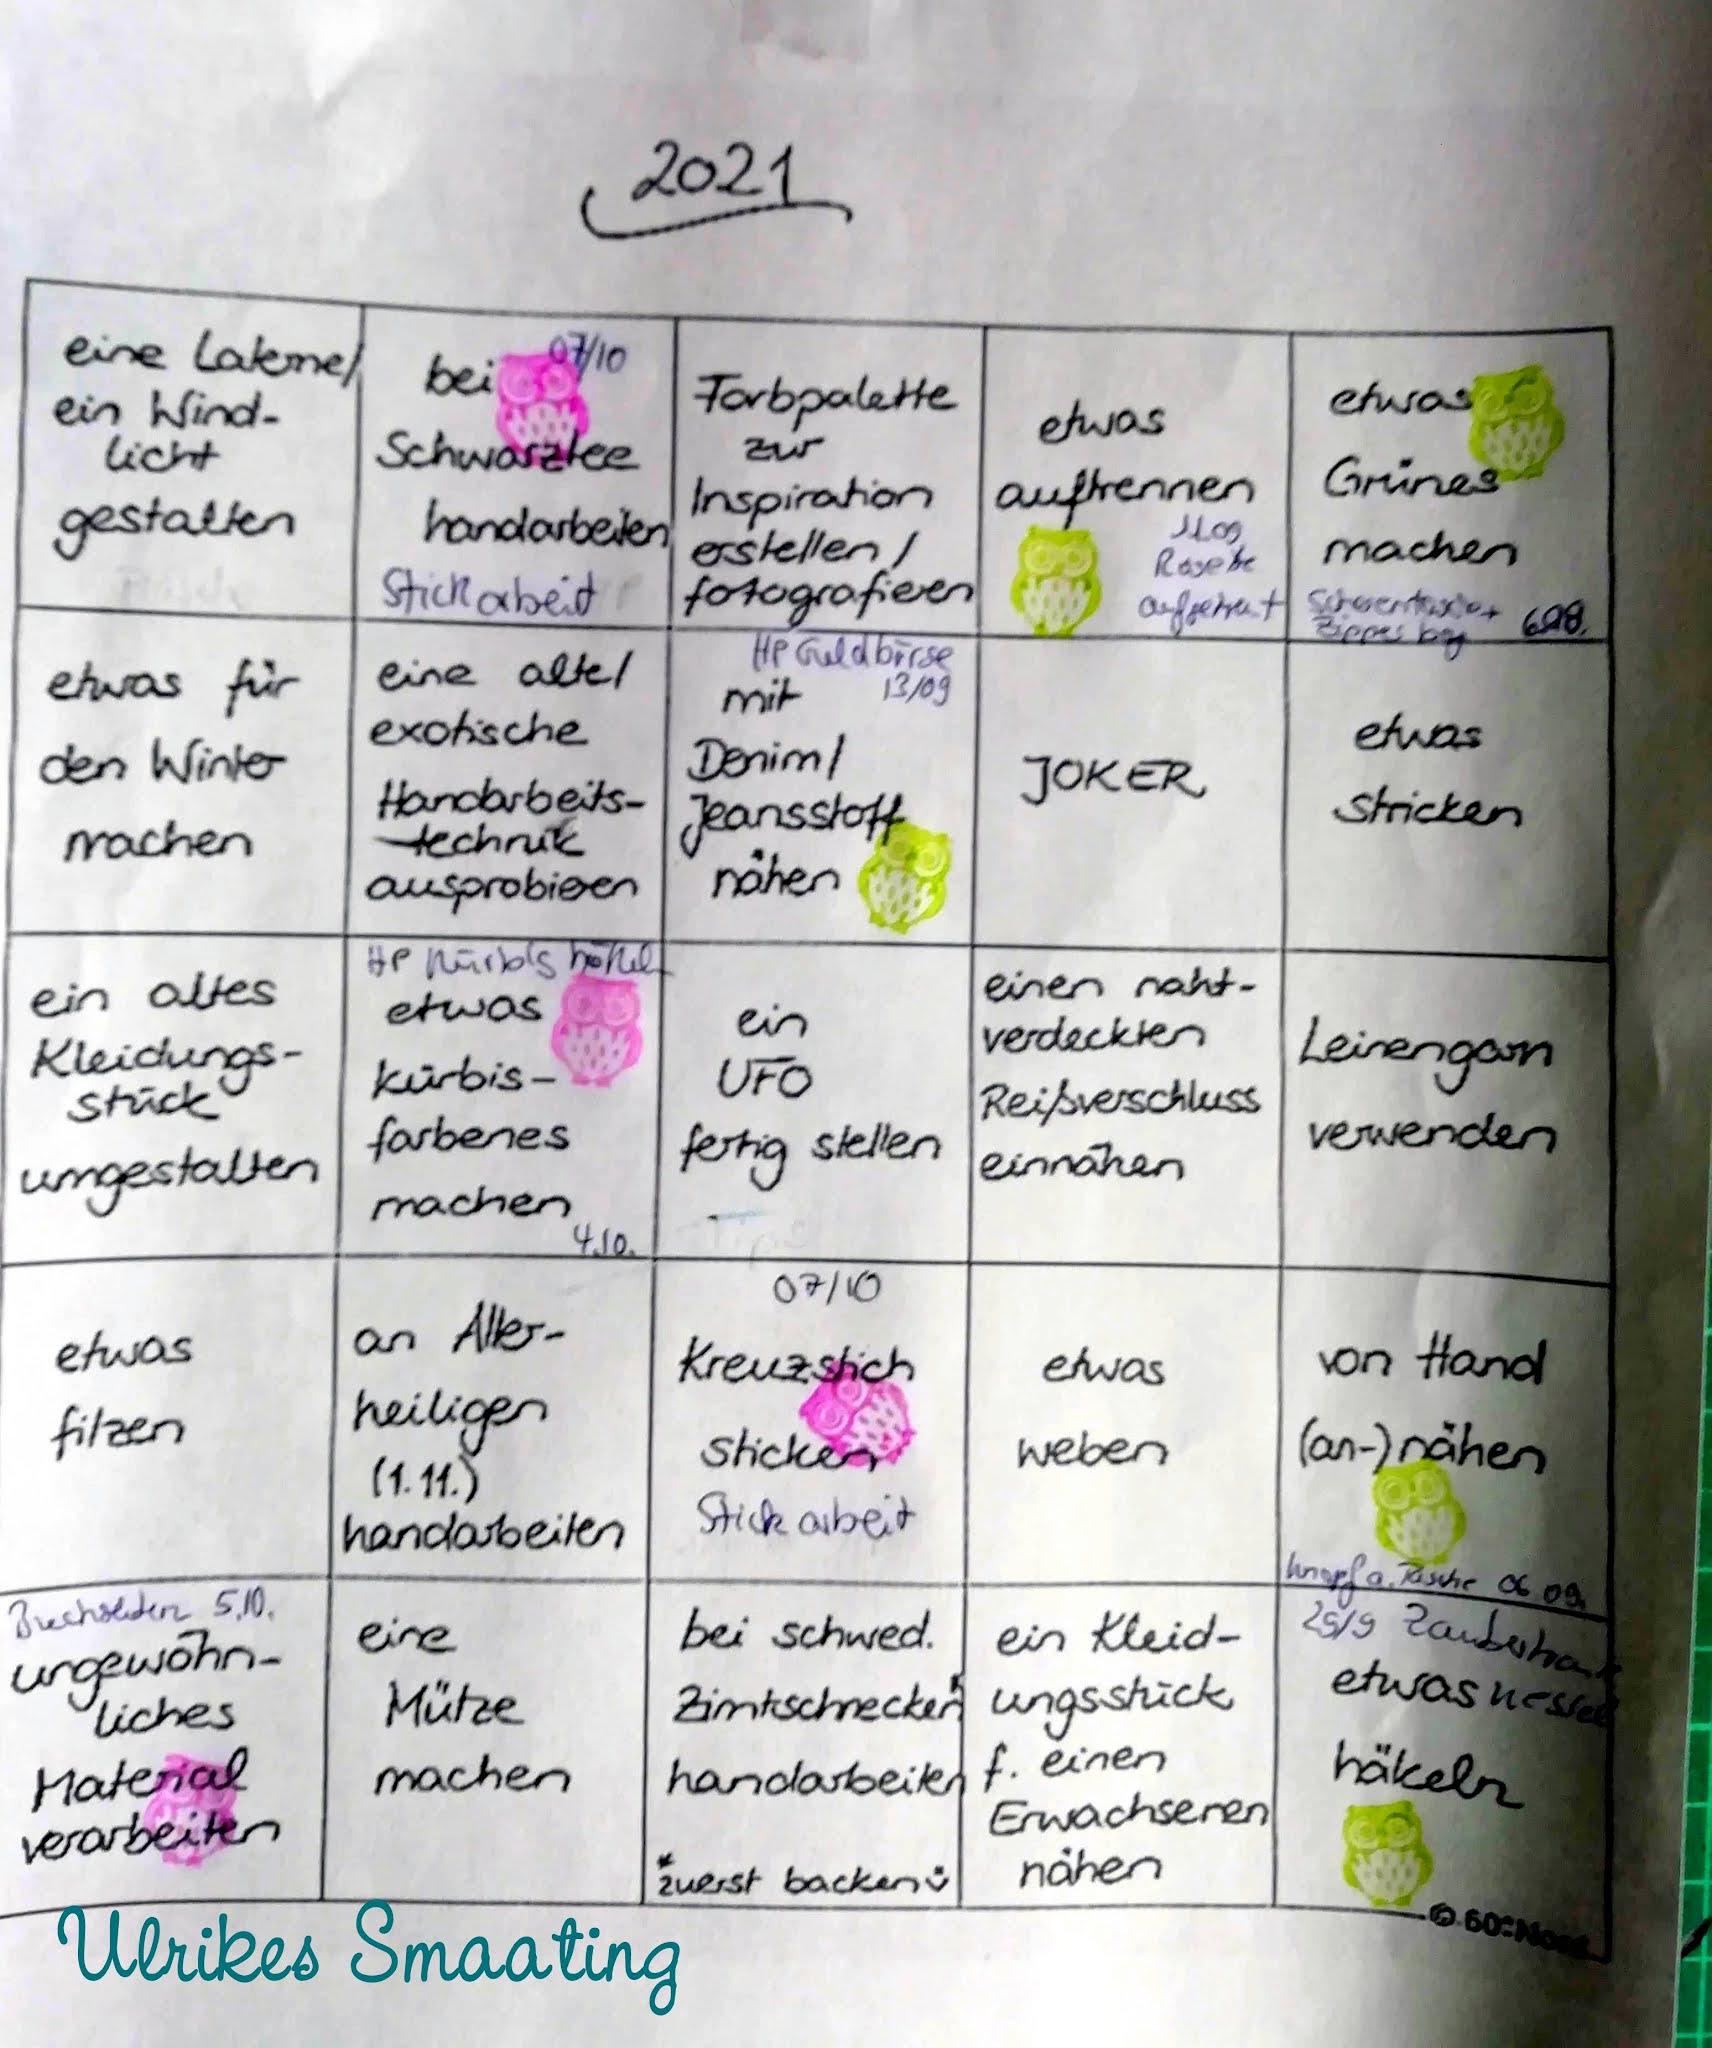 2021
eine Laterne/
ein Wind-
licht
gestalten
07/10
bei
Schwarztee
handarbeiten
Stickarbeit
Farbpalette
zur
Inspiration
erstellen/
fotografieren
etwas
auftrennen
etwas
Grünes
machen
Zipper bag
etwas für
den Winter
machen
eine alte/
exotische
Handarbeits-
technik
ausprobieren
HP Geldbörse
mit 13/09
Denim/
Jeansstoff
nähen
JOKER
etwas
stricken
ein altes
Kleidungs-
stück
umgestalten
HP Kürbis häkeln
etwas
kürbis-
farbenes
machen
4.10.
ein
UFO
fertig stellen
einen naht-
verdeckten
Reißverschluss
einnähen
Leinengarn
verwenden
etwas
filzen
an Aller-
heiligen
(1.11.)
handarbeiten
07/10
Kreuzstich
sticken
Stickarbeit
etwas
weben
von Hand
(an-)nähen
Knopf a. Tasche 06.09.
5.10.
ungewöhn-
liches
Material
verarbeiten
eine
Mütze
machen
bei schwed.
Zimtschnecken*
handarbeiten
*zuerst backen
ein Kleid-
ungsstück
f. einen
Erwachsenen
nähen
etwas
häkeln
Ulrikes Smaating